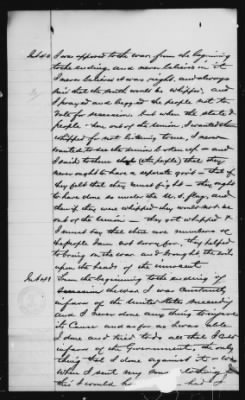 Int 40 I was opposed to the war from the beginning
to the ending and never believed in it
I never believed it was right, and always
said that the South would be whipped, and
I prayed and begged the people not to
vote for secession but when the state &
people   out of the Union, I wanted them
whipped for not listening to me, I never
wanted to see the Union broken up — and
I said to them (the people) that they
never ought to have a separate govt — that if
they felt that they must fight — they ought
to have done so under the U.S. flag, and
then if they were whipped they would not be
out of the Union — they got whipped &
I must say that there are numbers of
the people I am not sorry for, they helped
to bring on the war and brought the evil
upon the heads of the innocent.
Int 41 From the beginning to the ending of
the war I was constantly
in favor of the United States succeeding
and I never done any thing to injure
its Cause and as far as I was able
I done and tried to do all that I could
in favor of the Government, the only
thing that I done against it
when I sent my sons clothing
that I could have